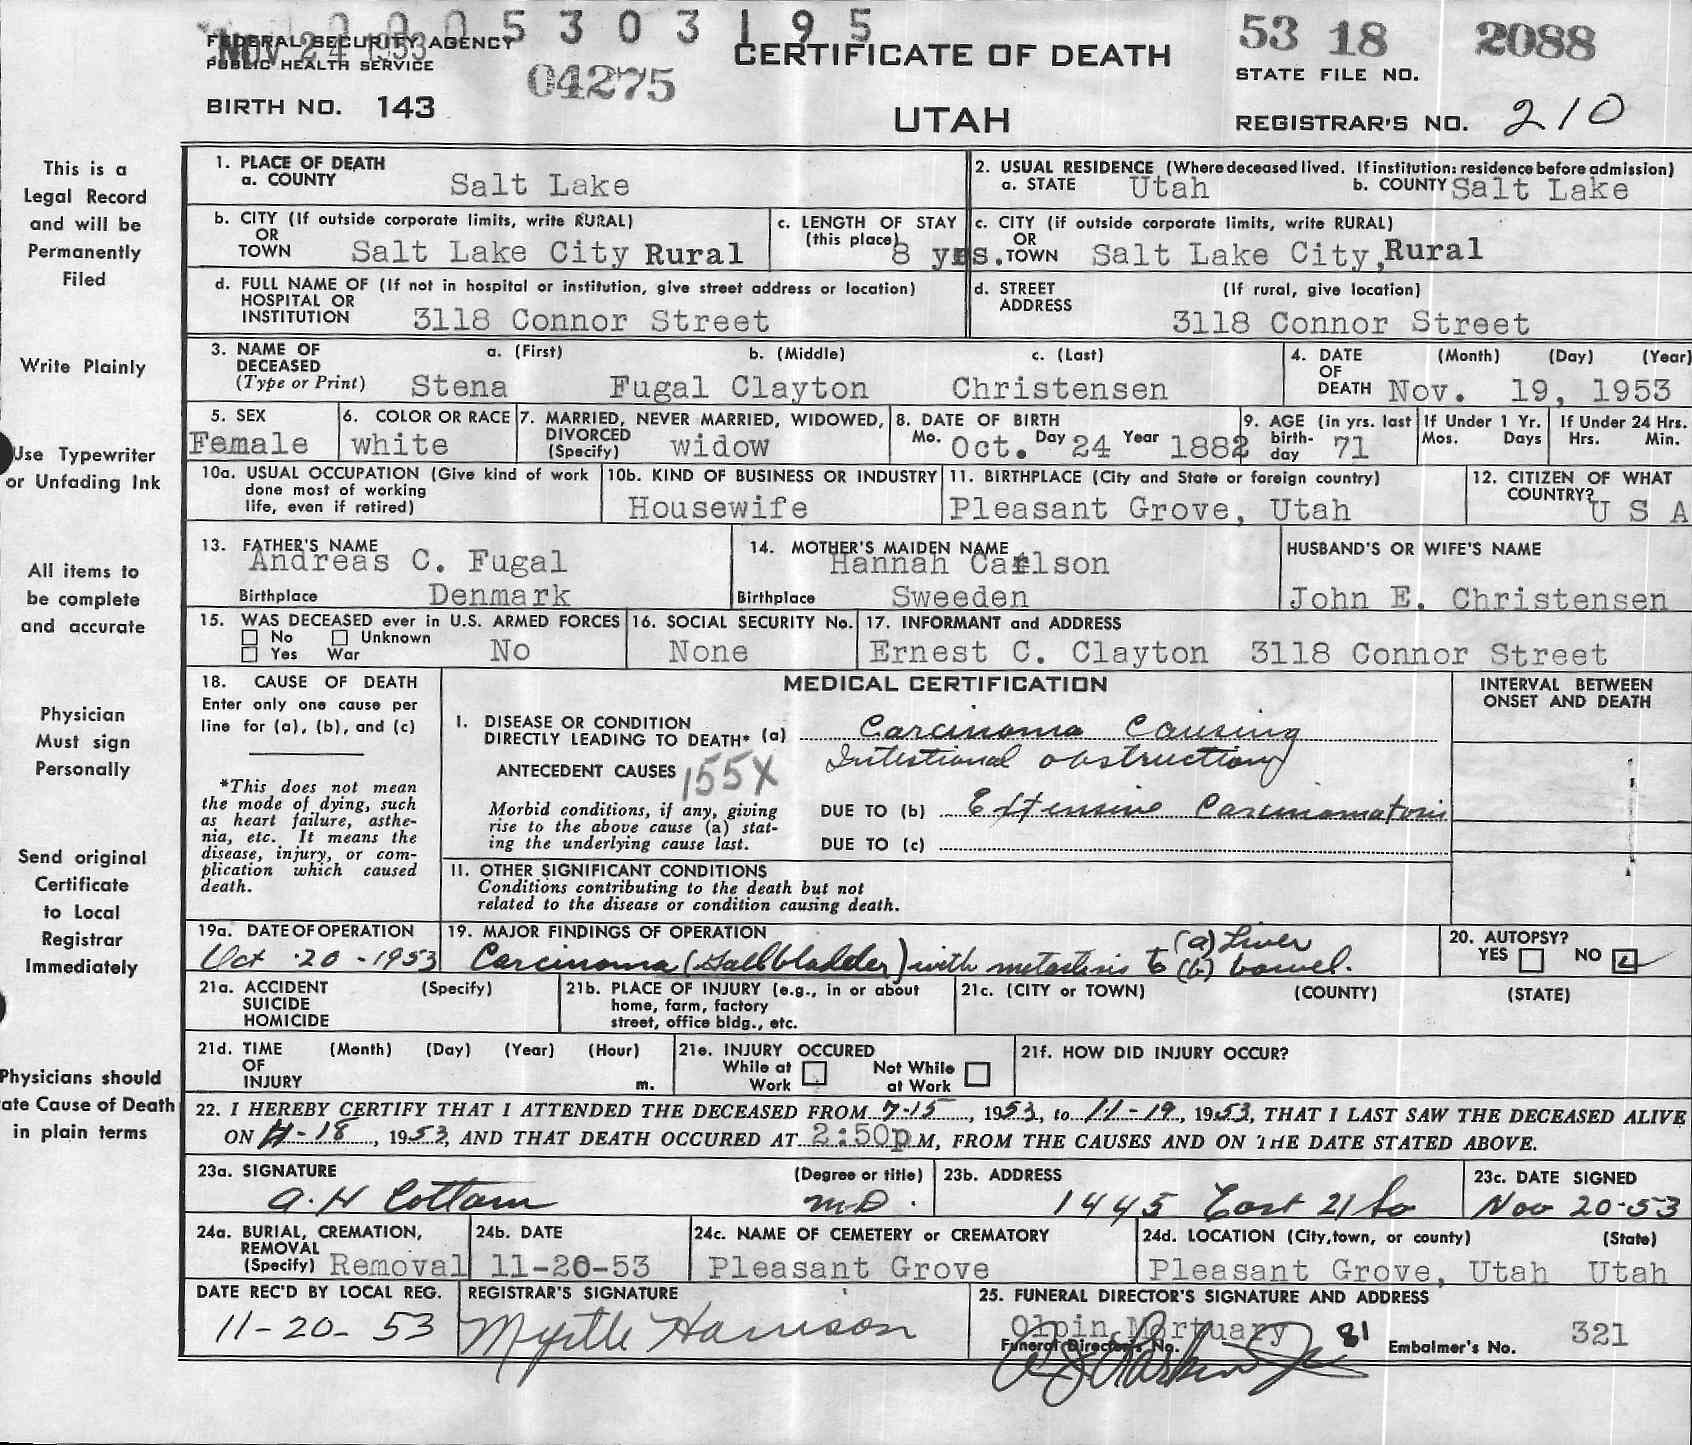 0005303195
53 18 2088
NOV 24 1953
FEDERAL SECURITY AGENCY
PUBLIC HEALTH SERVICE
04275
CERTIFICATE OF DEATH
STATE FILE NO.
BIRTH NO. 143
UTAH
REGISTRAR'S NO. 210
This is a
Legal Record
and will be
Permanently
Filed
Write Plainly
Use Typewriter
or Unfading Ink
All items to
be complete
and accurate
Physician
Must sign
Personally
Send original
Certificate
to Local
Registrar
Immediately
Physicians should
ate Cause of Death
in plain terms
1. PLACE OF DEATH
a. COUNTY Salt Lake
2. USUAL RESIDENCE (Where deceased lived. If institution: residence before admission)
a. STATE Utah b. COUNTY Salt Lake
b. CITY (If outside corporate limits, write RURAL)
OR
TOWN Salt Lake City Rural
c. LENGTH OF STAY
(this place) 8 yrs.
c. CITY (if outside corporate limits, write RURAL)
OR
TOWN Salt Lake City, Rural
d. FULL NAME OF (If not in hospital or institution, give street address or location)
HOSPITAL OR
INSTITUTION 3118 Connor Street
d. STREET (If rural, give location)
ADDRESS
3118 Connor Street
3. NAME OF a. (First) b. (Middle) c. (Last)
DECEASED
(Type or Print) Stena Fugal Clayton Christensen
4. DATE (Month) (Day) (Year)
OF
DEATH Nov. 19, 1953
5. SEX
Female
6. COLOR OR RACE
white
7. MARRIED, NEVER MARRIED, WIDOWED,
DIVORCED
(Specify) widow
8. DATE OF BIRTH
Mo. Oct. Day 24 Year 1882
9. AGE (in yrs. last
birth-
day 71
If Under 1 Yr.
Mos. Days
If Under 24 Hrs.
Hrs. Min.
10a. USUAL OCCUPATION (Give kind of work
done most of working
life, even if retired)
10b. KIND OF BUSINESS OR INDUSTRY
Housewife
11. BIRTHPLACE (City and State or foreign country)
Pleasant Grove, Utah
12. CITIZEN OF WHAT
COUNTRY?
U S A
13. FATHER'S NAME
Andreas C. Fugal
Birthplace Denmark
14. MOTHER'S MAIDEN NAME
Hannah Carlson
Birthplace Sweeden
HUSBAND'S OR WIFE'S NAME
John E. Christensen
15. WAS DECEASED ever in U.S. ARMED FORCES
No Unknown
Yes War No
16. SOCIAL SECURITY No.
None
17. INFORMANT and ADDRESS
Ernest C. Clayton 3118 Connor Street
18. CAUSE OF DEATH
Enter only one cause per
line for (a), (b), and (c)
*This does not mean
the mode of dying, such
as heart failure, asthe-
nia, etc. It means the
disease, injury, or com-
plication which caused
death.
MEDICAL CERTIFICATION
INTERVAL BETWEEN
ONSET AND DEATH
I. DISEASE OR CONDITION
DIRECTLY LEADING TO DEATH* (a) Carcinoma Causing
Intestional obstruction
ANTECEDENT CAUSES 155X
Morbid conditions, if any, giving
rise to the above cause (a) stat-
ing the underlying cause last.
DUE TO (b) Extensive Carcinomatosis
DUE TO (c)
II. OTHER SIGNIFICANT CONDITIONS
Conditions contributing to the death but not
related to the disease or condition causing death.
19a. DATE OF OPERATION
Oct 20 - 1953
19. MAJOR FINDINGS OF OPERATION
Carcinoma (Gallbladder) with metastisis to (a) Liver
(b) bowel.
20. AUTOPSY?
YES NO
21a. ACCIDENT (Specify)
SUICIDE
HOMICIDE
21b. PLACE OF INJURY (e.g., in or about
home, farm, factory
street, office bldg., etc.
21c. (CITY or TOWN) (COUNTY) (STATE)
21d. TIME (Month) (Day) (Year) (Hour)
OF
INJURY m.
21e. INJURY OCCURED
While at Work
Not While at Work
21f. HOW DID INJURY OCCUR?
22. I HEREBY CERTIFY THAT I ATTENDED THE DECEASED FROM 7-15, 1953, to 11-19, 1953, THAT I LAST SAW THE DECEASED ALIVE
ON 11-18, 1953, AND THAT DEATH OCCURED AT 2:50p M, FROM THE CAUSES AND ON THE DATE STATED ABOVE.
23a. SIGNATURE (Degree or title)
A. H Cottam M.D.
23b. ADDRESS
1445 East 21 So
23c. DATE SIGNED
Nov 20-53
24a. BURIAL, CREMATION,
REMOVAL
(Specify) Removal
24b. DATE
11-20-53
24c. NAME OF CEMETERY or CREMATORY
Pleasant Grove
24d. LOCATION (City, town, or county) (State)
Pleasant Grove, Utah Utah
DATE REC'D BY LOCAL REG.
11-20-53
REGISTRAR'S SIGNATURE
Myrtle Harrison
25. FUNERAL DIRECTOR'S SIGNATURE AND ADDRESS
Olpin Mortuary
Funeral Director's No. 81 Embalmer's No. 321